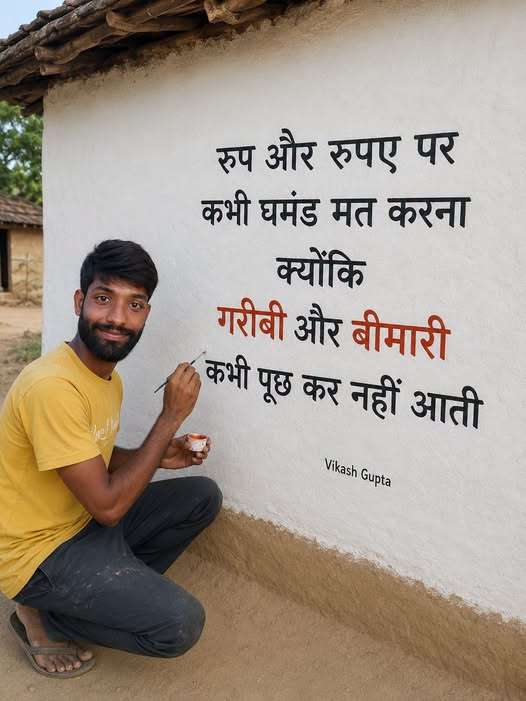 रुप और रुपए पर
कभी घमंड मत करना
क्योंकि
गरीबी और बीमारी
कभी पूछ कर नहीं आती
Vikash Gupta